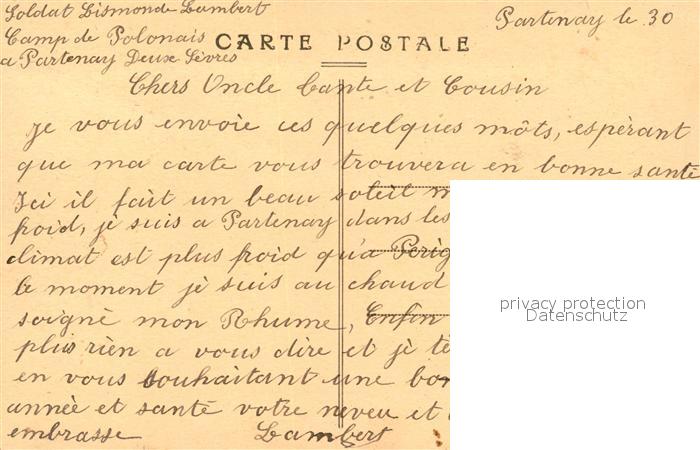 Soldat Lismonde Lambert
Camp de Polonais
a Partenay Deux Sèvres
Partenay le 30
CARTE POSTALE
Chers Oncle Cante et Cousin
je vous envoie ces quelques môts, espèrant
que ma carte vous trouvera en bonne santé
Ici il fait un beau soleil
froid, je suis a Partenay dans les
climat est plus froid qu'a Perig
le moment je suis au chaud
soignè mon Rhume, Enfin
plus rien a vous dire et je te
en vous souhaitant une bon
année et santé votre neveu et
embrasse Lambert
privacy protection
Datenschutz